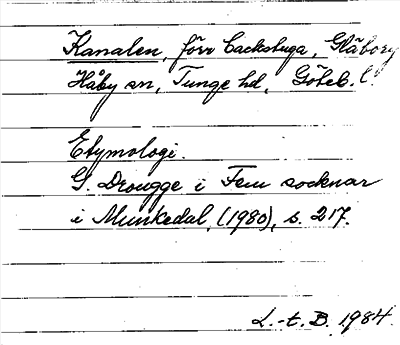 Kanalen, förr backstuga, Gläborg
Håby sn, Tunge hd, Göteb. l.
Etymologi.
G. Drougge i Fem socknar
i Munkedal, (1980), s. 217.
L.-t. B. 1984.